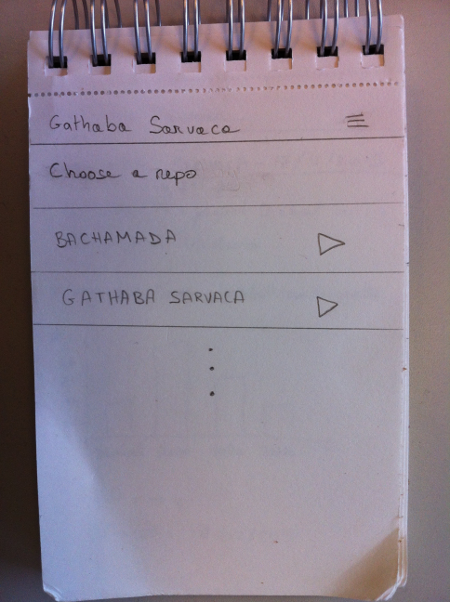 Gathaba Sarvaca
Choose a repo
BACHAMADA
GATHABA SARVACA